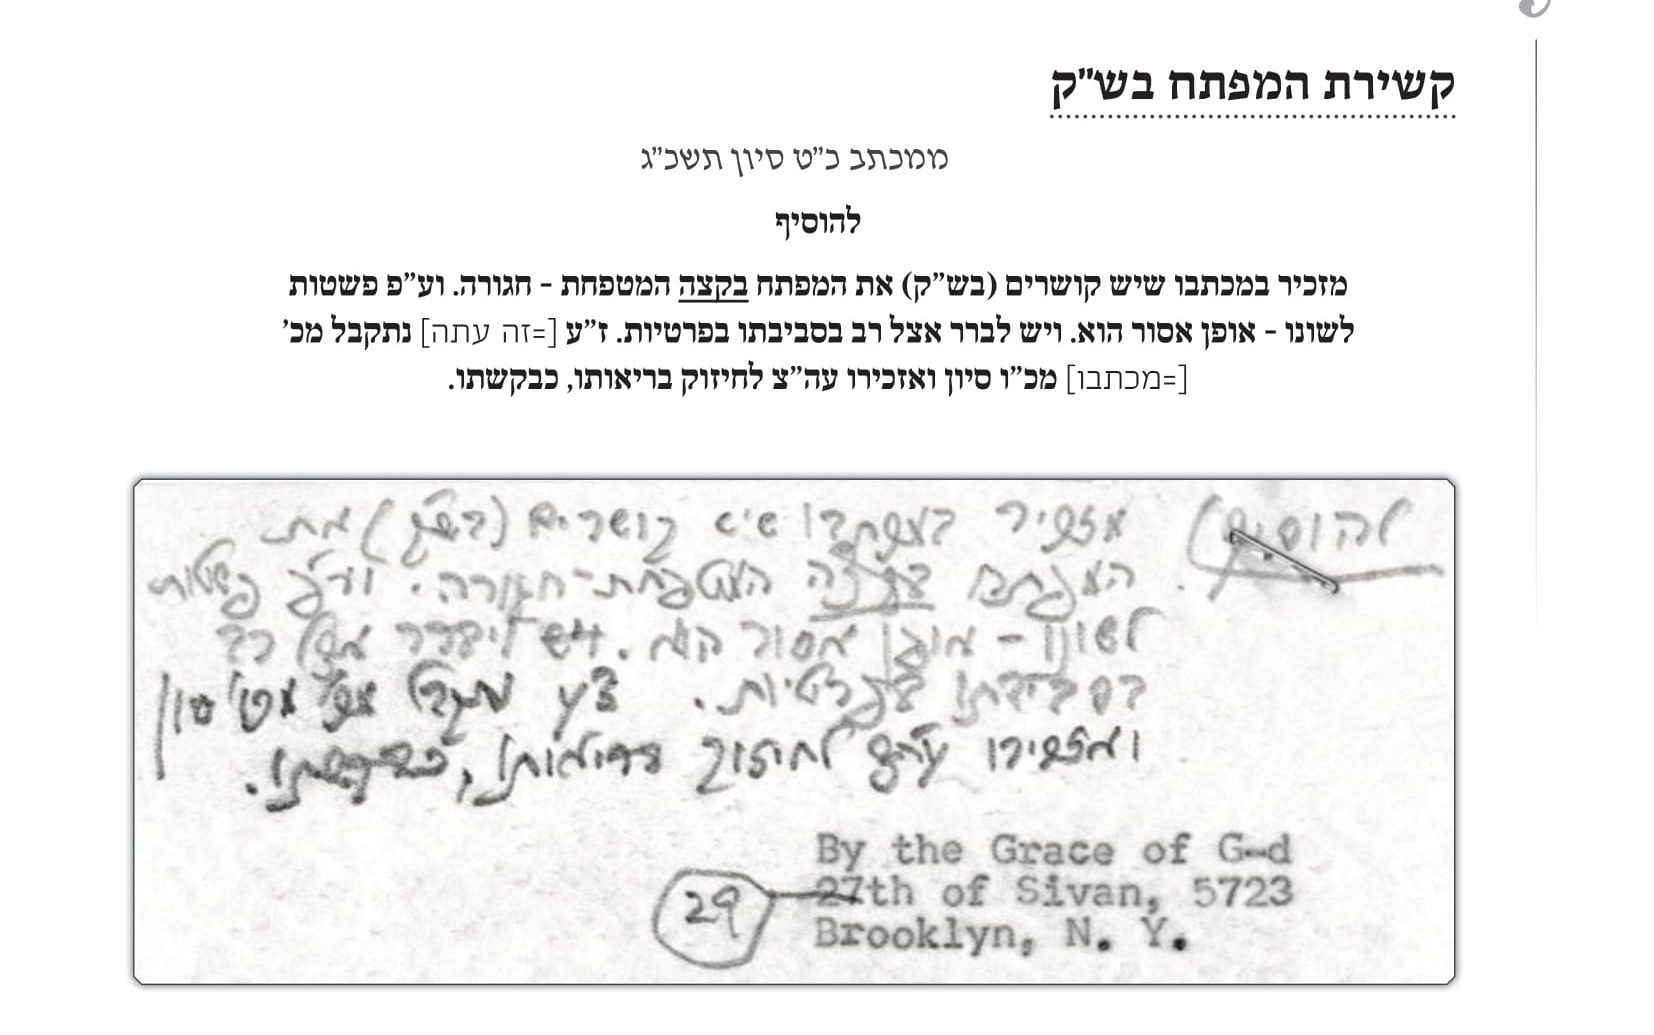 קשירת המפתח בש"ק
ממכתב כ"ט סיון תשכ"ג
להוסיף
מזכיר במכתבו שיש קושרים (בש"ק) את המפתח בקצה המטפחת - חגורה. וע"פ פשטות
לשונו - אופן אסור הוא. ויש לברר אצל רב בסביבתו בפרטיות. ז"ע [=זה עתה] נתקבל מכ'
[=מכתבו] מכ"ו סיון ואזכירו עה"צ לחיזוק בריאותו, כבקשתו.
להוסיף) מזכיר במכתבו שיש קושרים (בש"ק) את
המפתח בקצה המטפחת-חגורה. וע"פ פשטות
לשונו - אופן אסור הוא. ויש לברר אצל רב
בסביבתו בפרטיות. ז"ע נתקבל מכ' סיון
ואזכירו עה"צ לחיזוק בריאותו, כבקשתו.
By the Grace of G-d
27th of Sivan, 5723
29
Brooklyn, N. Y.